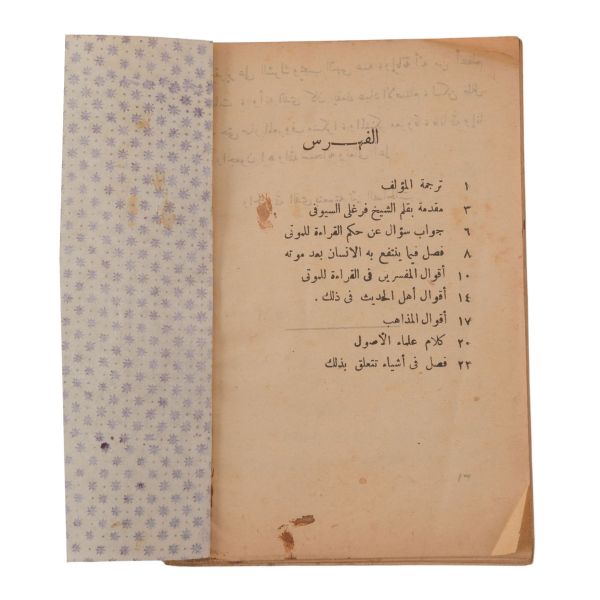 الفهرس
١ ترجمة المؤلف
٣ مقدمة بقلم الشيخ فرغلى السيوفى
٦ جواب سؤال عن حكم القراءة للموتى
٨ فصل فيما ينتفع به الانسان بعد موته
١٠ أقوال المفسرين فى القراءة للموتى
١٤ أقوال أهل الحديث فى ذلك .
١٧ أقوال المذاهب
٢٠ كلام علماء الأصول
٢٢ فصل فى أشياء تتعلق بذلك